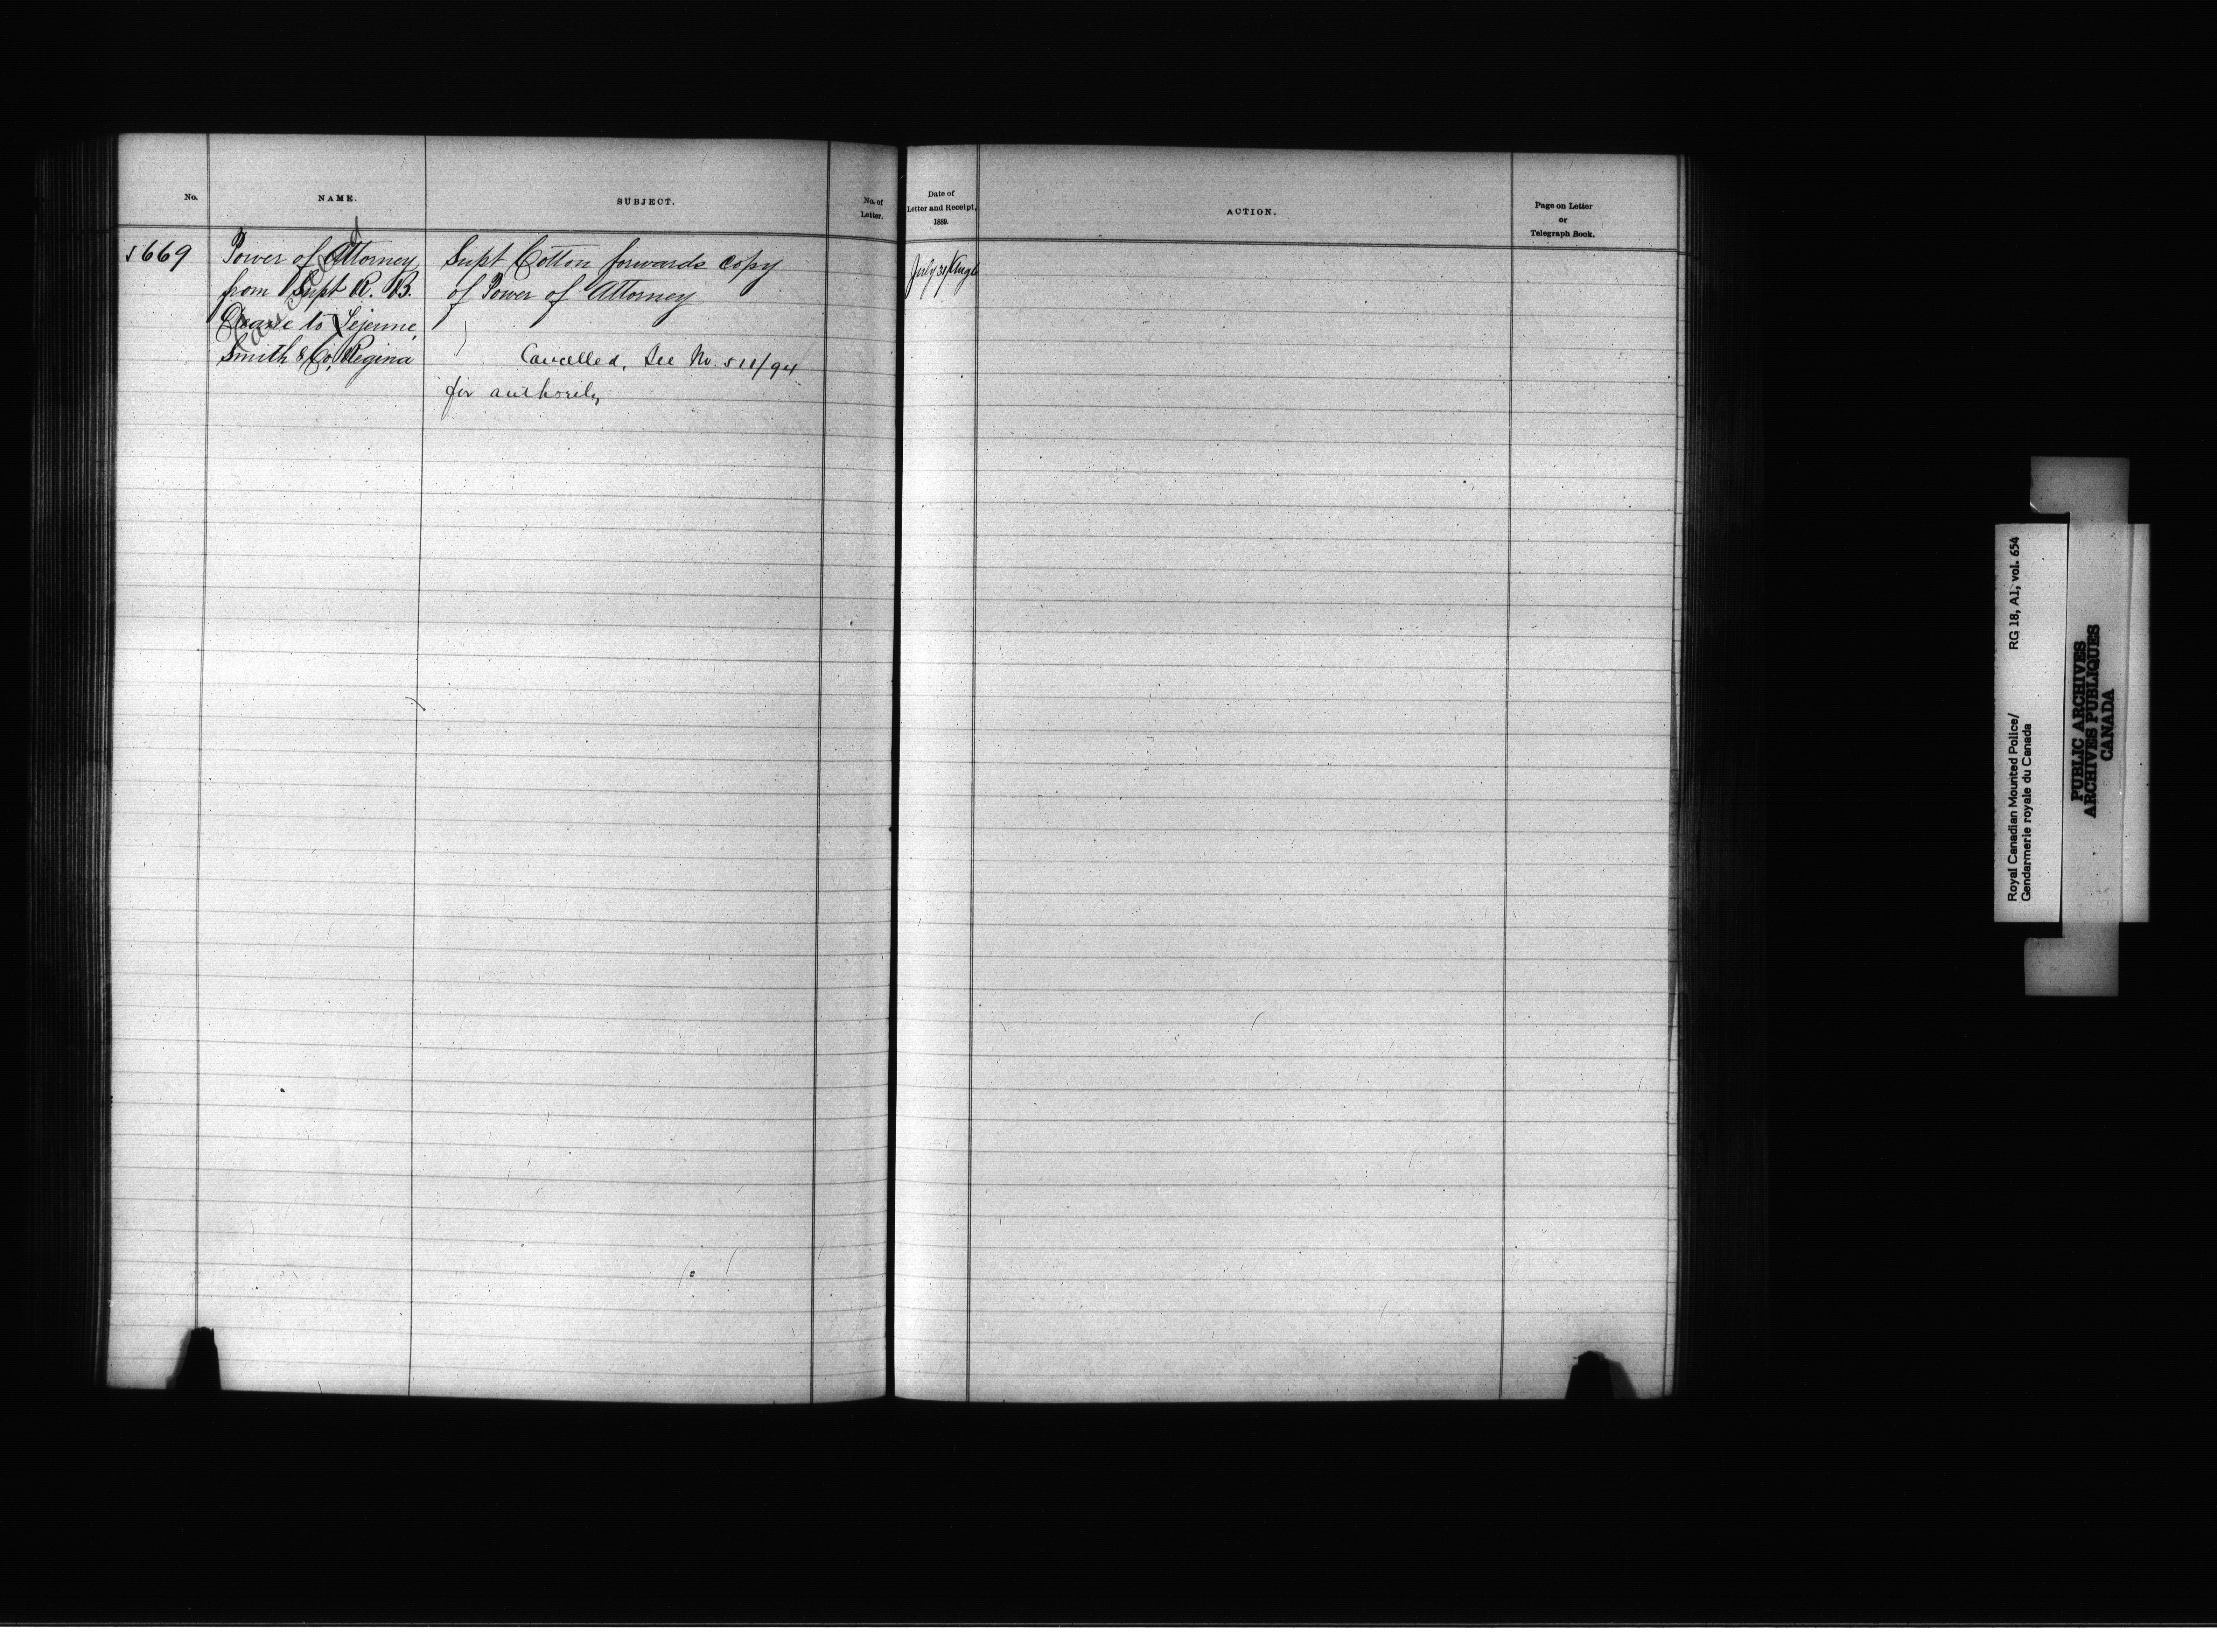 No.
NAME.
SUBJECT.
No. of
Letter.
Date of
Letter and Receipt,
1889.
ACTION.
Page on Letter
or
Telegraph Book.
669
Power of Attorney
from Supt R. B.
Deane to Lejeune,
Smith & Co, Regina
Cancelled
Supt Cotton forwards copy
of Power of Attorney
Cancelled, See No. 511/94
for authority
July 31/Aug 6
Royal Canadian Mounted Police/ RG 18, A1, vol. 654
Gendarmerie royale du Canada
PUBLIC ARCHIVES
ARCHIVES PUBLIQUES
CANADA